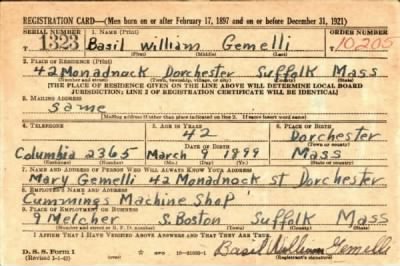 REGISTRATION CARD—(Men born on or after February 17, 1897 and on or before December 31, 1921)
SERIAL NUMBER 1. NAME (Print) ORDER NUMBER
1323 Basil William Gemelli 10205
(First) (Middle) (Last)
2. PLACE OF RESIDENCE (Print)
42 Monadnock Dorchester Suffolk Mass
(Number and street) (Town, township, village, or city) (County) (State)
[THE PLACE OF RESIDENCE GIVEN ON THE LINE ABOVE WILL DETERMINE LOCAL BOARD
JURISDICTION; LINE 2 OF REGISTRATION CERTIFICATE WILL BE IDENTICAL]
3. MAILING ADDRESS
Same
[Mailing address if other than place indicated on line 2. If same insert word same]
4. TELEPHONE 5. AGE IN YEARS 6. PLACE OF BIRTH
42 Dorchester
DATE OF BIRTH (Town or county)
Columbia 2365 March 9 1899 Mass
(Exchange) (Number) (Mo.) (Day) (Yr.) (State or country)
7. NAME AND ADDRESS OF PERSON WHO WILL ALWAYS KNOW YOUR ADDRESS
Mary Gemelli 42 Monadnock st Dorchester
8. EMPLOYER'S NAME AND ADDRESS
Cummings Machine Shop
9. PLACE OF EMPLOYMENT OR BUSINESS
9 Melcher S. Boston Suffolk Mass
(Number and street or R. F. D. number) (Town) (County) (State)
I AFFIRM THAT I HAVE VERIFIED ABOVE ANSWERS AND THAT THEY ARE TRUE.
D. S. S. Form 1
(Revised 1-1-42) Basil William Gemelli
(Registrant's signature)